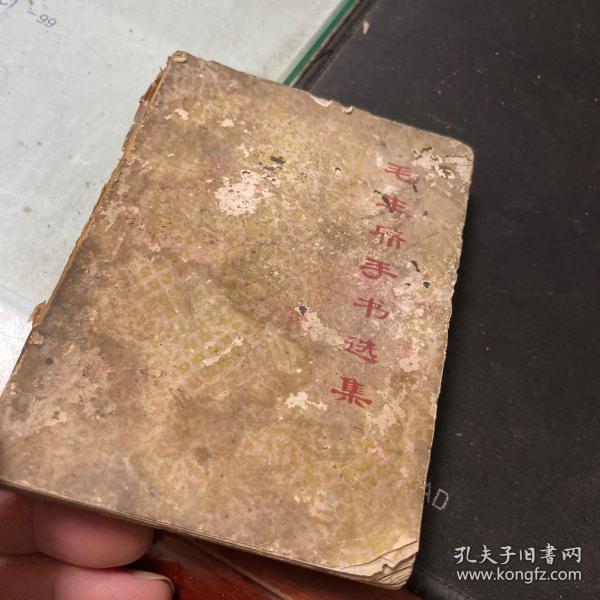 毛主席手书选集
AD
孔夫子旧書网
www.kongfz.com